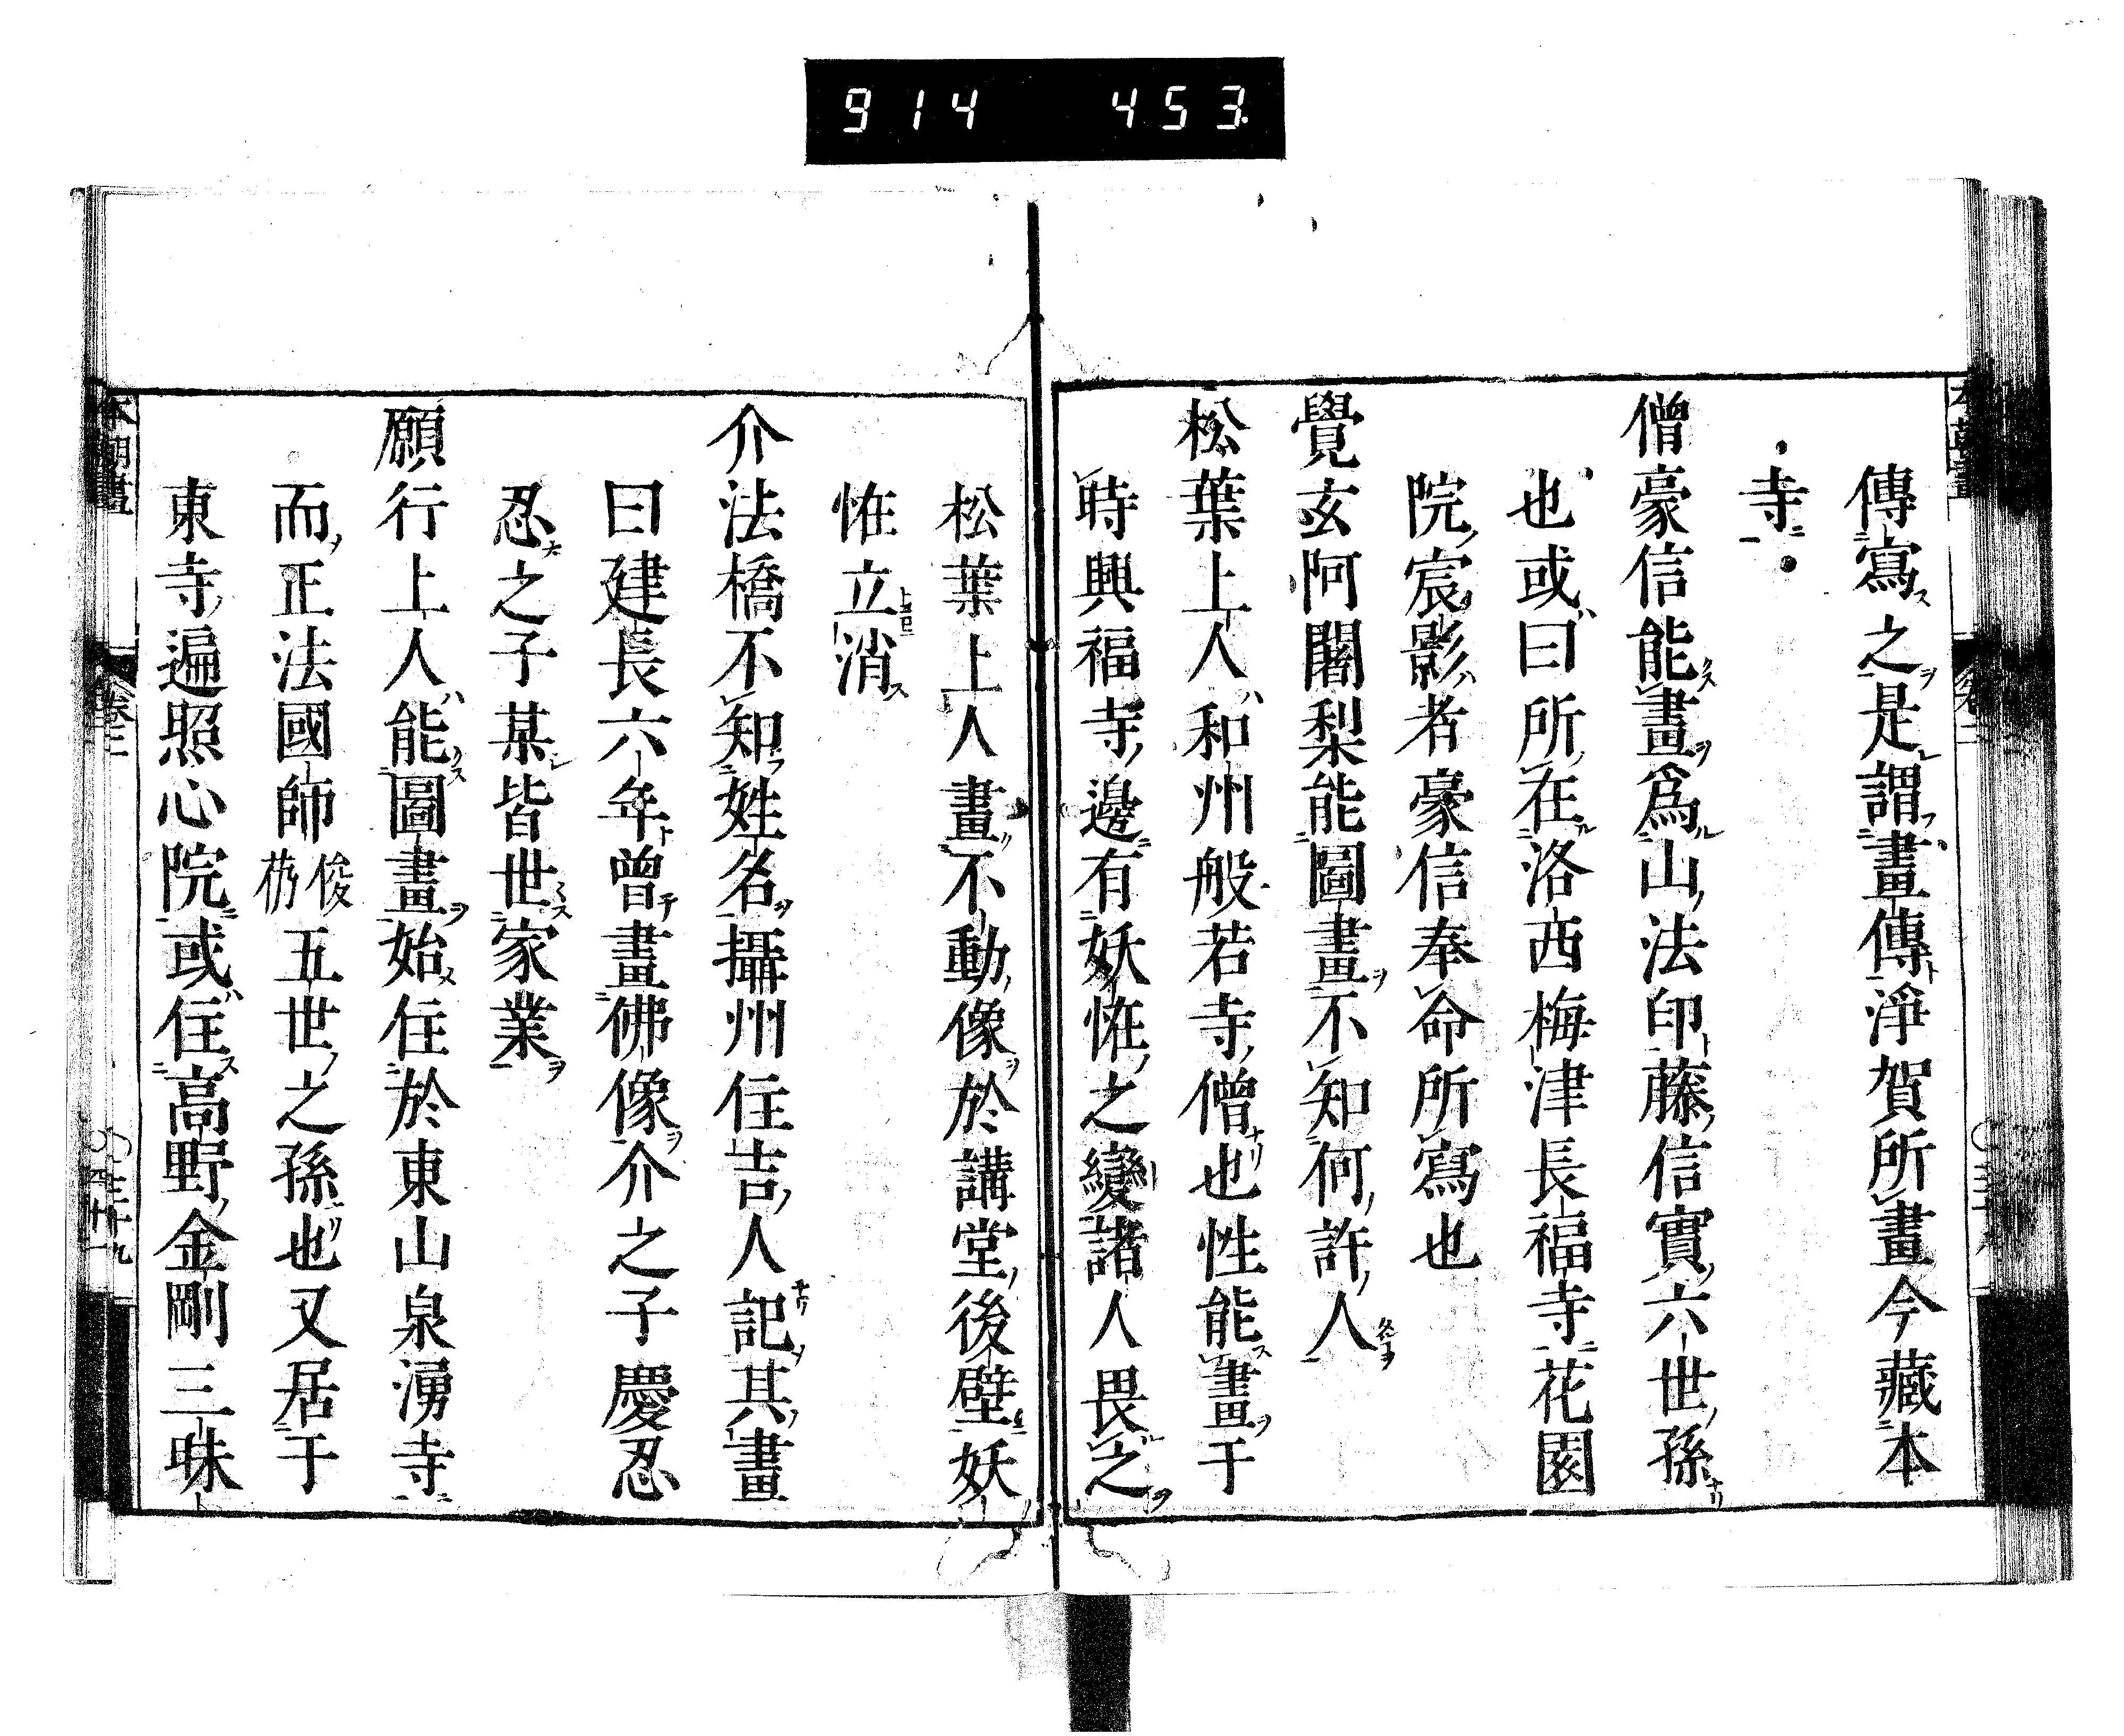 914 453
傳寫之是謂畫傳淨賀所畫今藏本
寺
僧豪信能畫爲山法印藤信實六世孫
也或曰所在洛西梅津長福寺花園
院宸影者豪信奉命所寫也
覺玄阿闍梨能圖畫不知何許人
松葉上人和州般若寺僧也性能畫于
時興福寺邊有妖恠之變諸人畏之
松葉上人畫不動像於講堂後壁妖
恠立消
介法橋不知姓名攝州住吉人記其畫
曰建長六年曾畫佛像介之子慶忍
忍之子某皆世家業
願行上人能圖畫始住於東山泉湧寺
而正法國師俊芿五世之孫也又居于
東寺遍照心院或住高野金剛三昧
本朝畫 卷三 三十九